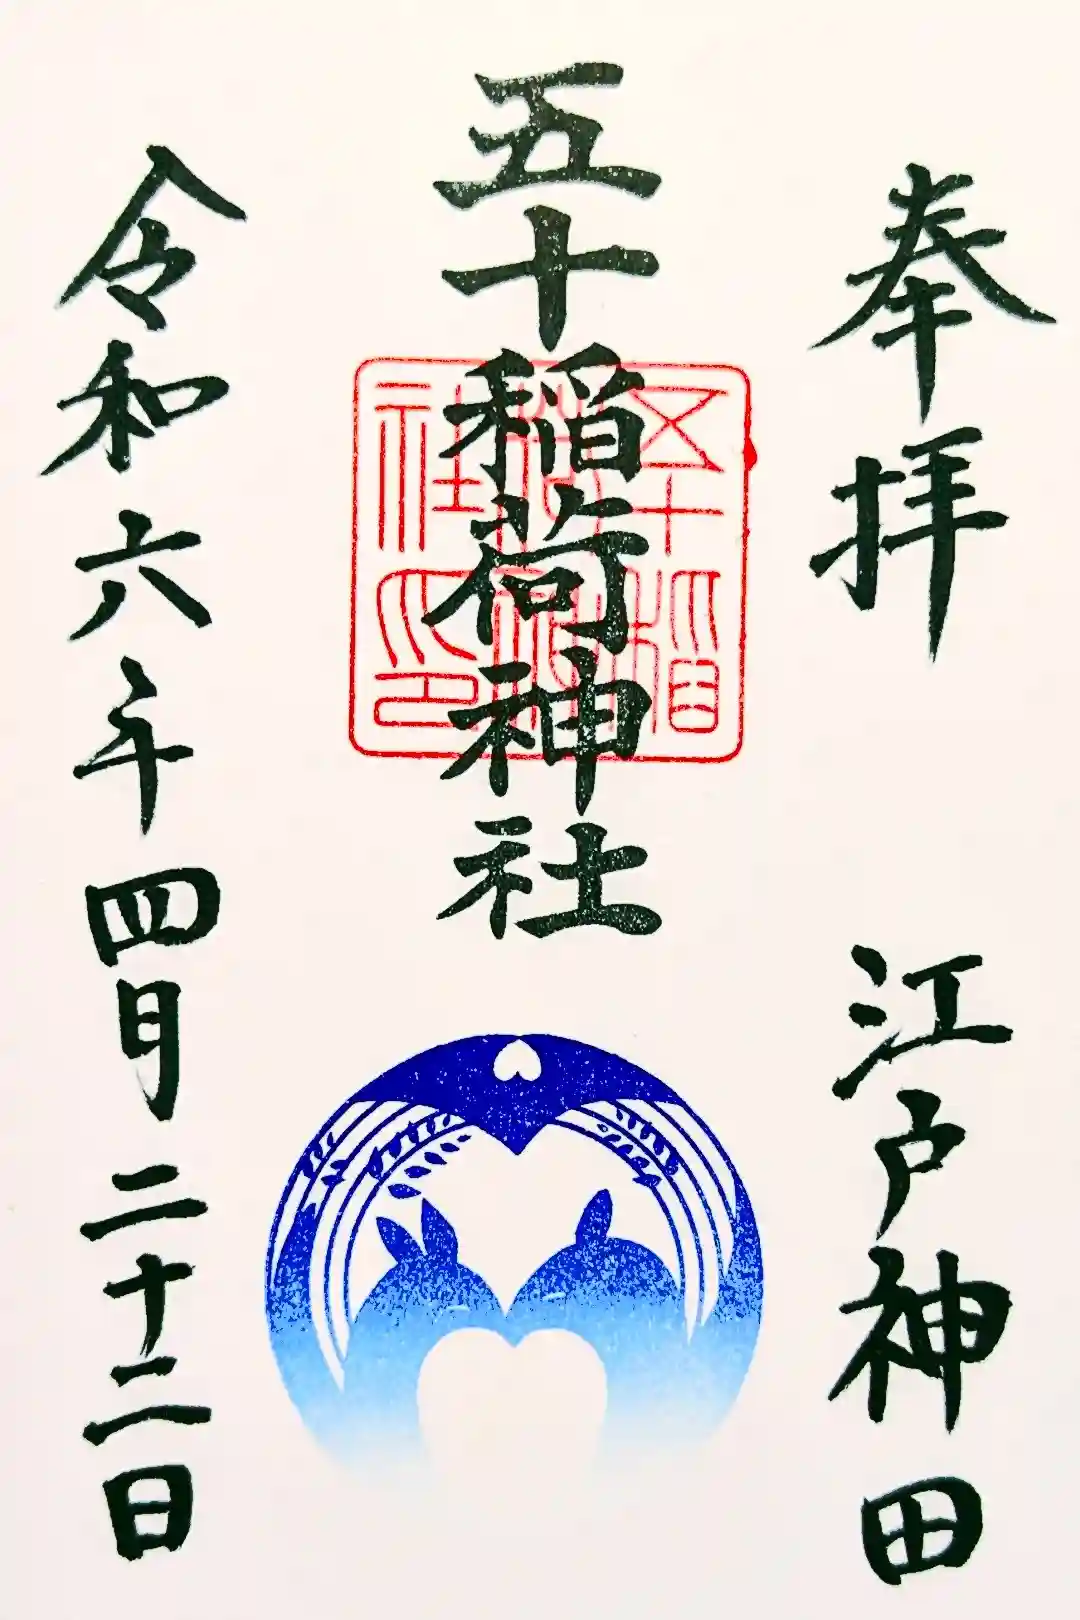 奉拝
江戸神田
五十稲荷神社
五十稲荷神社印
令和六年四月二十二日